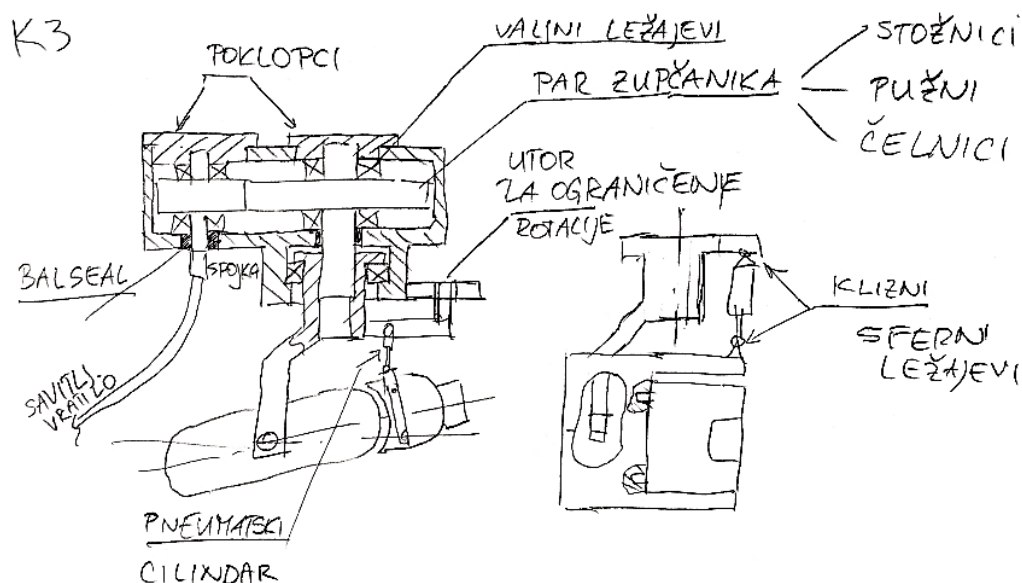 K3
POKLOPCI
VALJNI LEŽAJEVI
PAR ZUPČANIKA
STOŽNICI
PUŽNI
ČELNICI
UTOR
ZA OGRANIČENJE
ROTACIJE
BALSEAL
SPOJKA
SAVITLJIVO
VRATILO
KLIZNI
SFERNI
LEŽAJEVI
PNEUMATSKI
CILINDAR